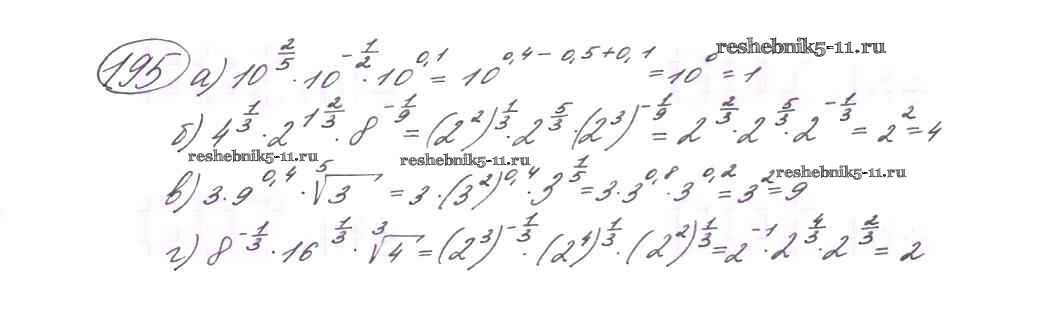 195 а) 10^{2/5} · 10^{-1/2} · 10^{0,1} = 10^{0,4 - 0,5 + 0,1} = 10^0 = 1 reshebnik5-11.ru
б) 4^{1/3} · 2^{1 2/3} · 8^{-1/9} = (2^2)^{1/3} · 2^{5/3} · (2^3)^{-1/9} = 2^{2/3} · 2^{5/3} · 2^{-1/3} = 2^2 = 4
reshebnik5-11.ru reshebnik5-11.ru reshebnik5-11.ru
в) 3 · 9^{0,4} · \sqrt[5]{3} = 3 · (3^2)^{0,4} · 3^{1/5} = 3 · 3^{0,8} · 3^{0,2} = 3^2 = 9
г) 8^{-1/3} · 16^{1/3} · \sqrt[3]{4} = (2^3)^{-1/3} · (2^4)^{1/3} · (2^2)^{1/3} = 2^{-1} · 2^{4/3} · 2^{2/3} = 2